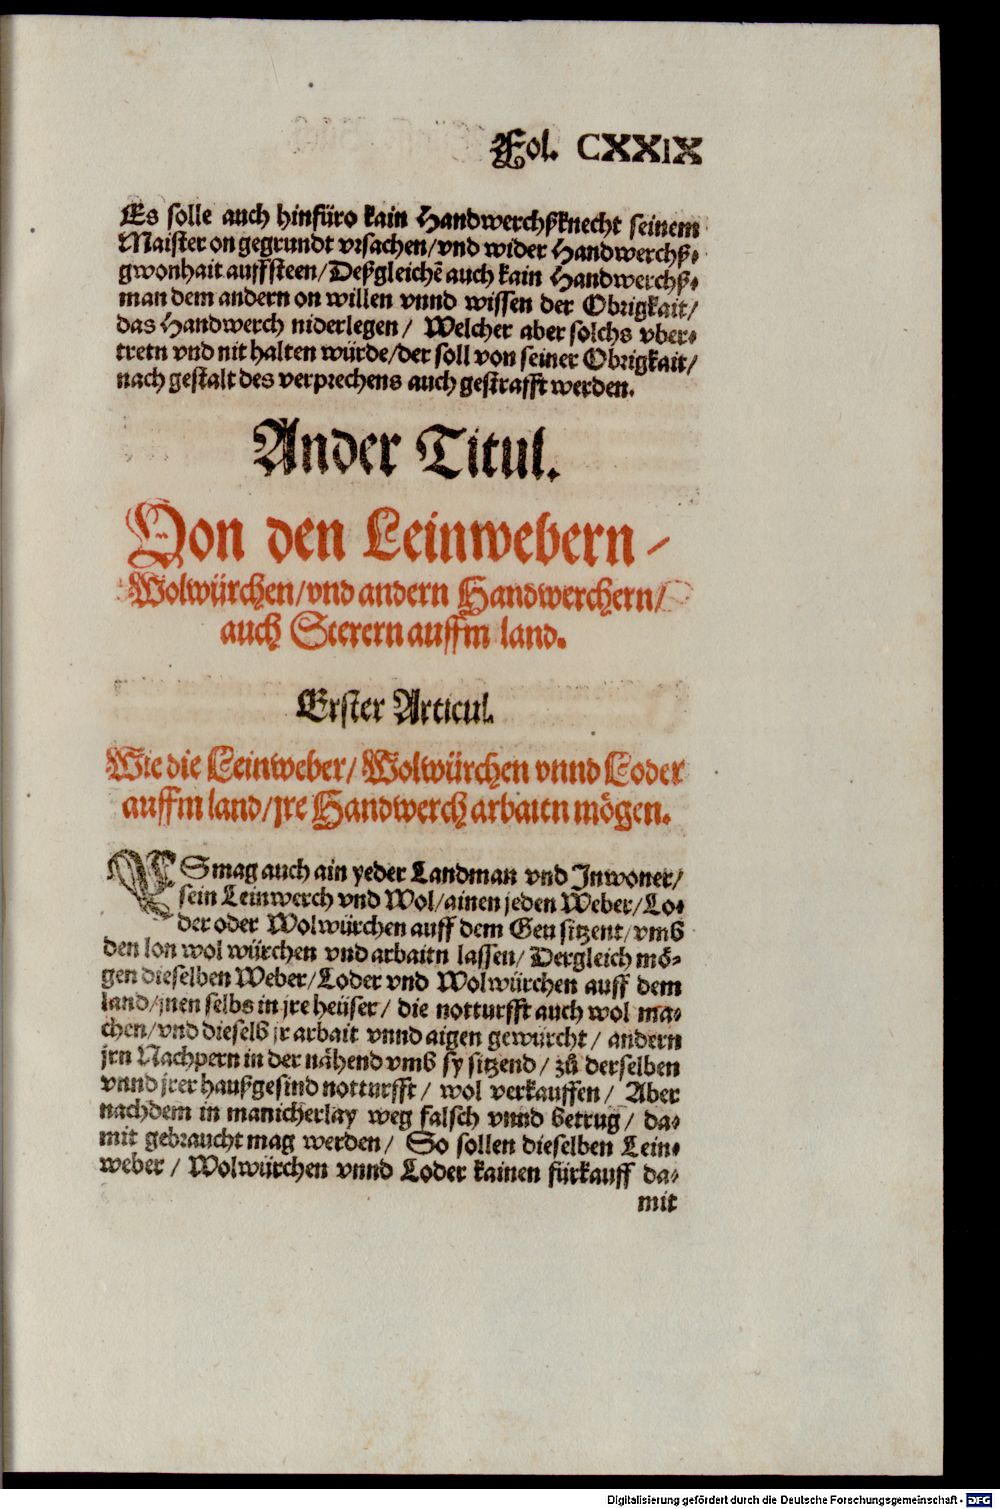 Fol. CXXIX
Es solle auch hinfüro kain Handwerchßknecht seinem
Maister on gegrundt vrsachen/vnd wider Handwerchß⸗
gwonhait auffsteen/Deßgleichẽ auch kain Handwerchß⸗
man dem andern on willen vnnd wissen der Obrigkait/
das Handwerch niderlegen/ Welcher aber solchs vber⸗
tretn vnd nit halten würde/der soll von seiner Obrigkait/
nach gestalt des verprechens auch gestrafft werden.
Ander Titul.
Von den Leinwebern/
Wolwürchen/vnd andern Handwerchern/
auch Sterern auffm land.
Erster Articul.
Wie die Leinweber/ Wolwürchen vnnd Loder
auffm land/jre Handwerch arbaitn mögen.
ES mag auch ain yeder Landman vnd Inwoner/
sein Leinwerch vnd Wol/ainen jeden Weber/Lo⸗
der oder Wolwürchen auff dem Geu sitzent/vmb
den lon wol würchen vnd arbaitn lassen/ Dergleich mö⸗
gen dieselben Weber/Loder vnd Wolwürchen auff dem
land/jnen selbs in jre heüser/ die notturfft auch wol ma⸗
chen/vnd dieselb jr arbait vnnd aigen gewürcht/ andern
jrn Nachpern in der nähend vmb sy sitzend/ zů derselben
vnnd jrer haußgesind notturfft/ wol verkauffen/ Aber
nachdem in manicherlay weg falsch vnnd betrug/ da⸗
mit gebraucht mag werden/ So sollen dieselben Lein⸗
weber/ Wolwürchen vnnd Loder kainen fürkauff da⸗
mit
Digitalisierung gefördert durch die Deutsche Forschungsgemeinschaft - DFG